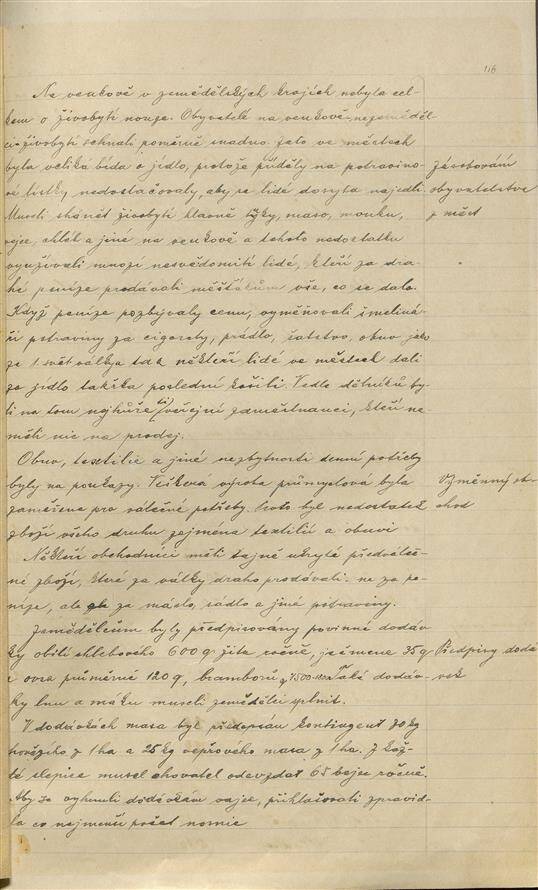 116
Na venkově v zemědělských krajích nebyla cel-
kem o živobytí nouze. Obyvatelé na venkově, nezeměděl-
ci živobytí sehnali poměrně snadno. Zato ve městech
byla veliká bída o jídlo, protože příděly na potravino-
vé lístky nedostačovaly, aby se lidé dosyta najedli.
Museli shánět živobytí hlavně tuky, maso, mouku,
vejce, chléb a jiné na venkově a tohoto nedostatku
využívali mnozí nesvědomití lidé, kteří za dra-
hé peníze prodávali měšťákům vše, co se dalo.
Když peníze pozbývaly cenu, vyměňovali šmeliná-
ři potraviny za cigarety, prádlo, šatstvo, obuv, jako
za 1. svět. války a tak někteří lidé ve městech dali
za jídlo takřka poslední košili. Vedle dělníků by-
li na tom nejhůře ti veřejní zaměstnanci, kteří ne-
měli nic na prodej.
Obuv, textilie a jiné nezbytnosti denní potřeby
byly na poukazy. Veškerá výroba průmyslová byla
zaměřena pro válečné potřeby. Proto byl nedostatek
zboží všeho druhu zejména textilií a obuvi
Někteří obchodníci měli tajně ukryté předváleč-
né zboží, které za války draho prodávali: ne za pe-
níze, ale za máslo, sádlo a jiné potraviny.
Zemědělcům byly předpisovány povinné dodáv-
ky obilí chlebového 600 q žita ročně, ječmene 35 q
a ovsa průměrně 120 q, bramborů Také dodáv-
ky lnu a máku museli zemědělci splnit.
V dodávkách masa byl předepsán kontingent 70 kg
hovězího z 1 ha a 25 kg vepřového masa z 1 ha. Z kaž-
dé slepice musel chovatel odevzdat 65 vajec ročně.
Aby se vyhnuli dodávkám vajec, přihlašovali zpravid-
la co nejmenší počet nosnic
zásobování
obyvatelstva
z měst
Výměnný ob-
chod
Předpisy dodá-
vek